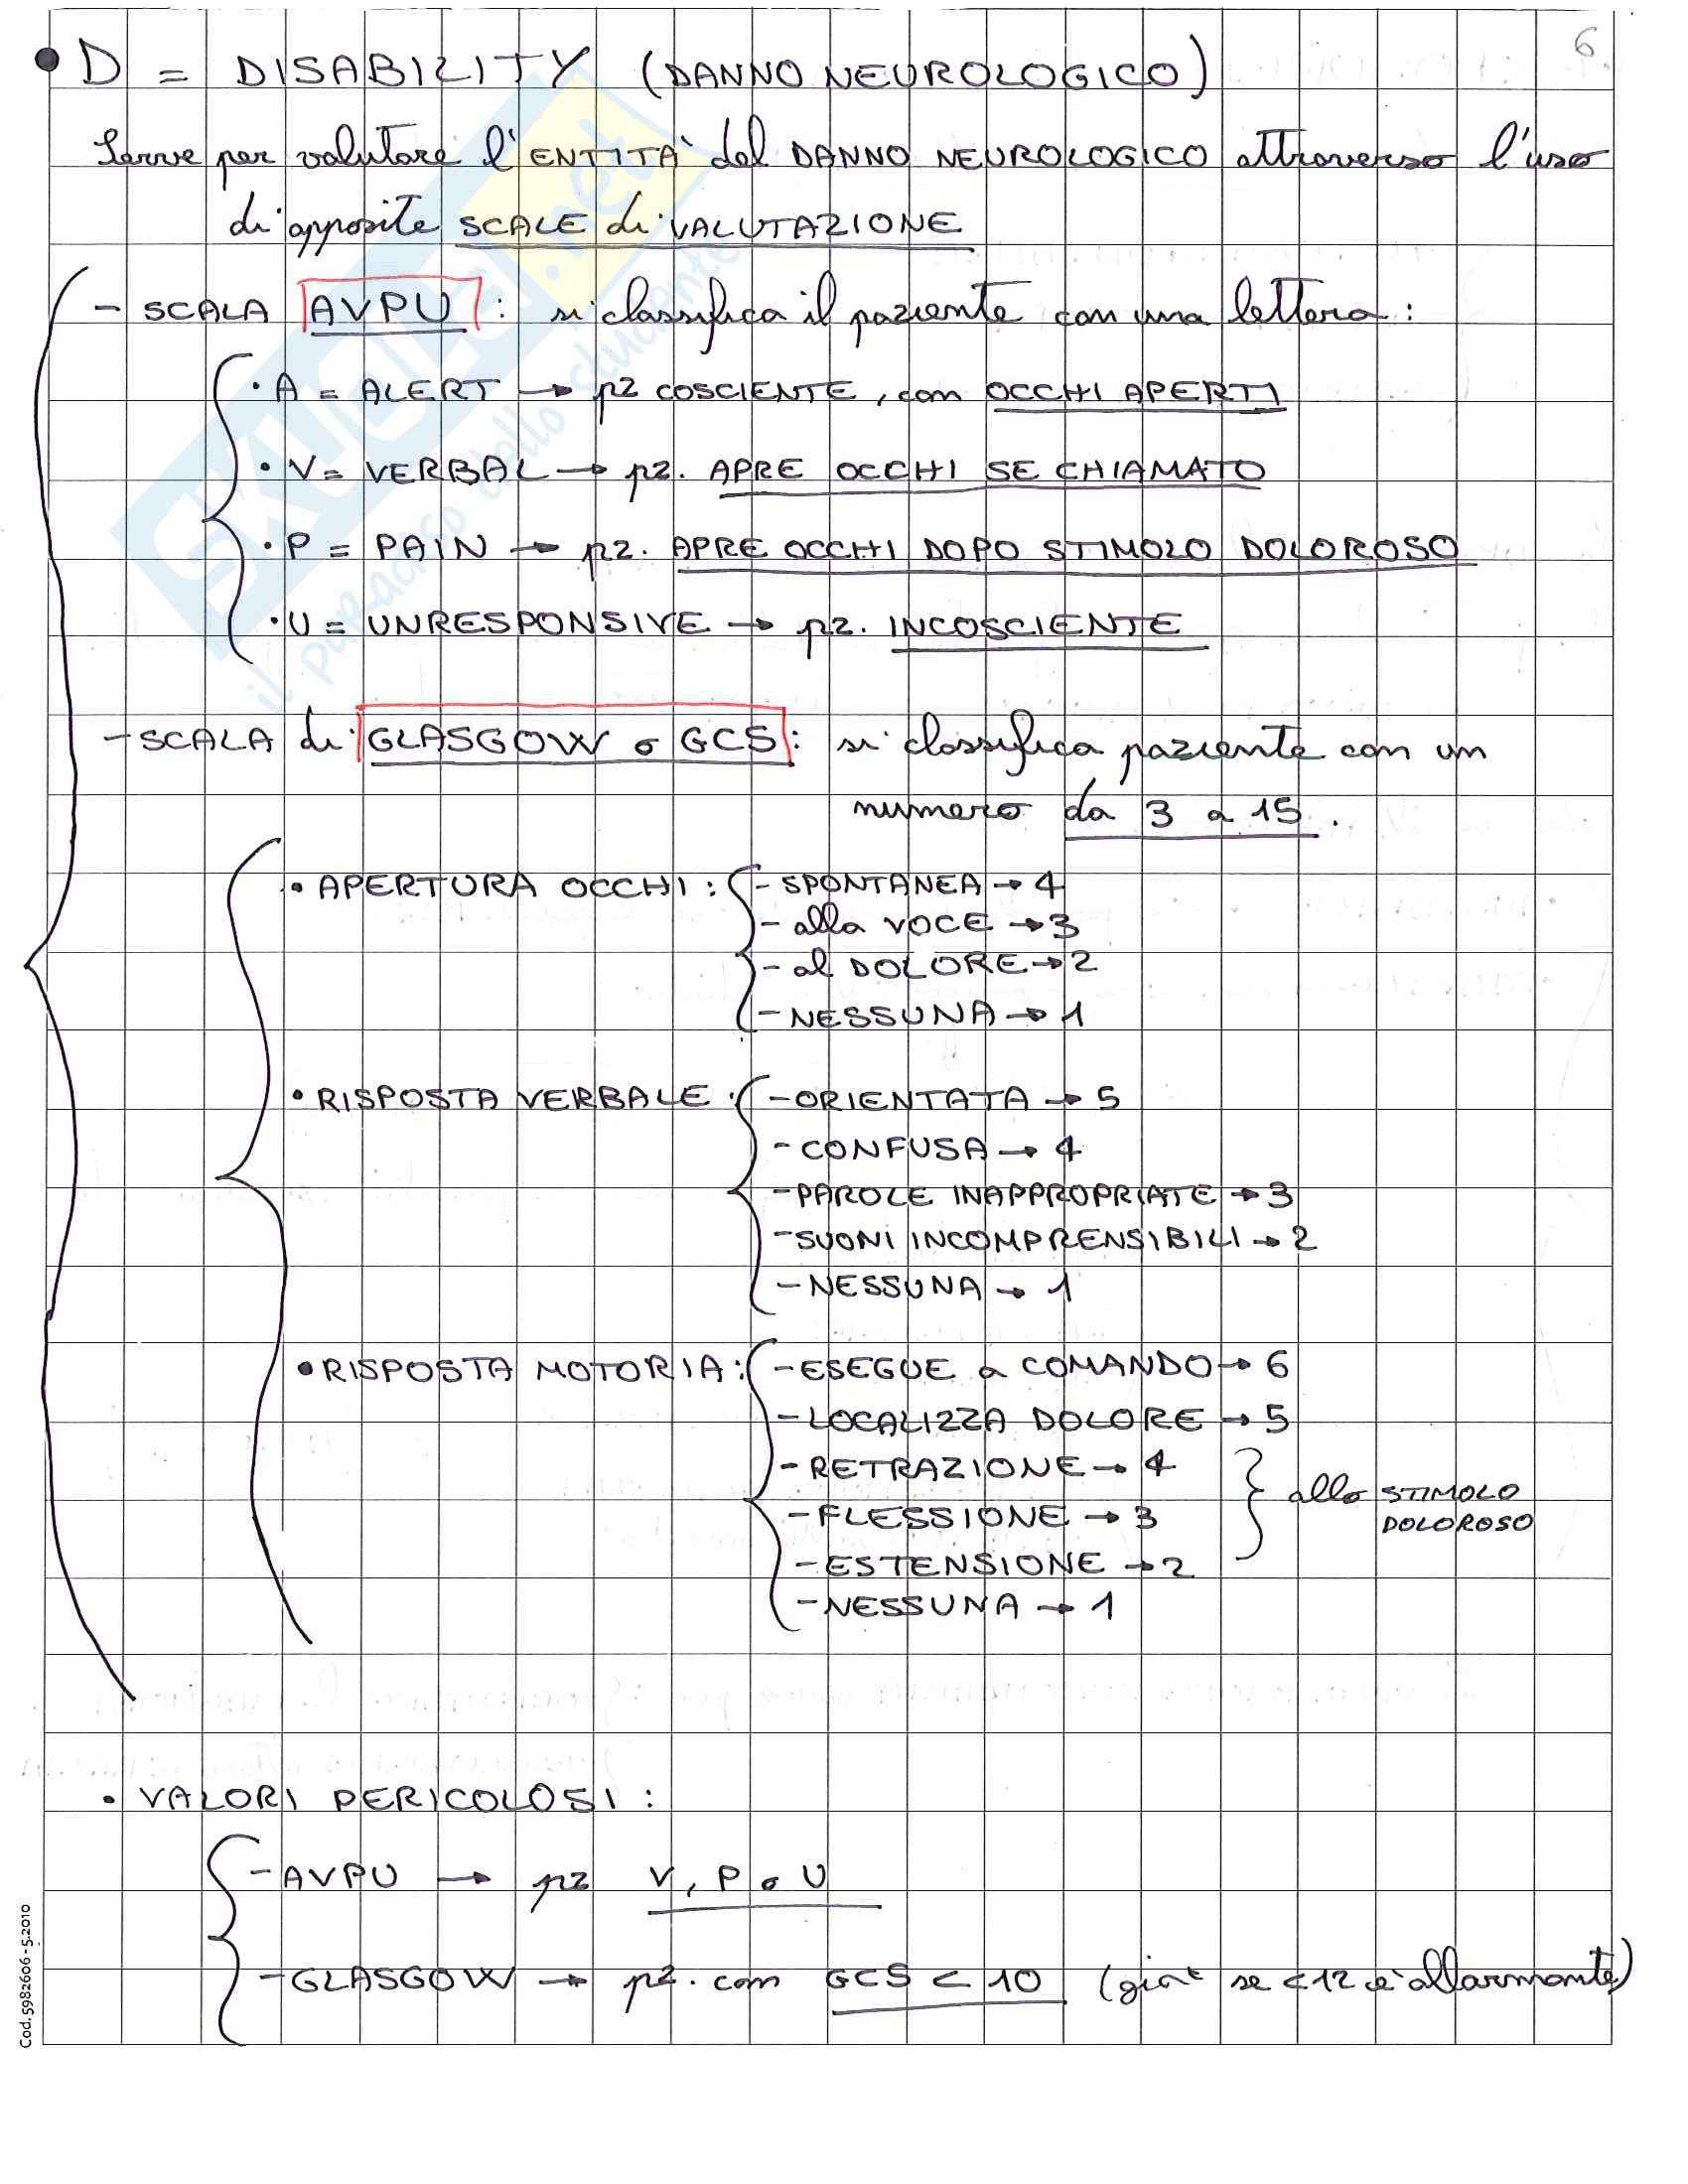 6
• D = DISABILITY (DANNO NEUROLOGICO)
Serve per valutare l'ENTITÀ del DANNO NEUROLOGICO attraverso l'uso
di apposite SCALE di VALUTAZIONE
- SCALA AVPU : si classifica il paziente con una lettera :
· A = ALERT → pz COSCIENTE, con OCCHI APERTI
· V = VERBAL → pz. APRE OCCHI SE CHIAMATO
· P = PAIN → pz. APRE OCCHI DOPO STIMOLO DOLOROSO
· U = UNRESPONSIVE → pz. INCOSCIENTE
- SCALA di GLASGOW o GCS : si classifica paziente con un
numero da 3 a 15.
• APERTURA OCCHI : - SPONTANEA → 4
- alla VOCE → 3
- al DOLORE → 2
- NESSUNA → 1
• RISPOSTA VERBALE : - ORIENTATA → 5
- CONFUSA → 4
- PAROLE INAPPROPRIATE → 3
- SUONI INCOMPRENSIBILI → 2
- NESSUNA → 1
• RISPOSTA MOTORIA : - ESEGUE a COMANDO → 6
- LOCALIZZA DOLORE → 5
- RETRAZIONE → 4
- FLESSIONE → 3
- ESTENSIONE → 2
allo STIMOLO
DOLOROSO
- NESSUNA → 1
• VALORI PERICOLOSI :
- AVPU → pz V, P o U
- GLASGOW → pz. con GCS < 10 (già se < 12 è allarmante)
Cod. 5982606 - 5.2010
SKUOLA.net
il paradiso dello studente